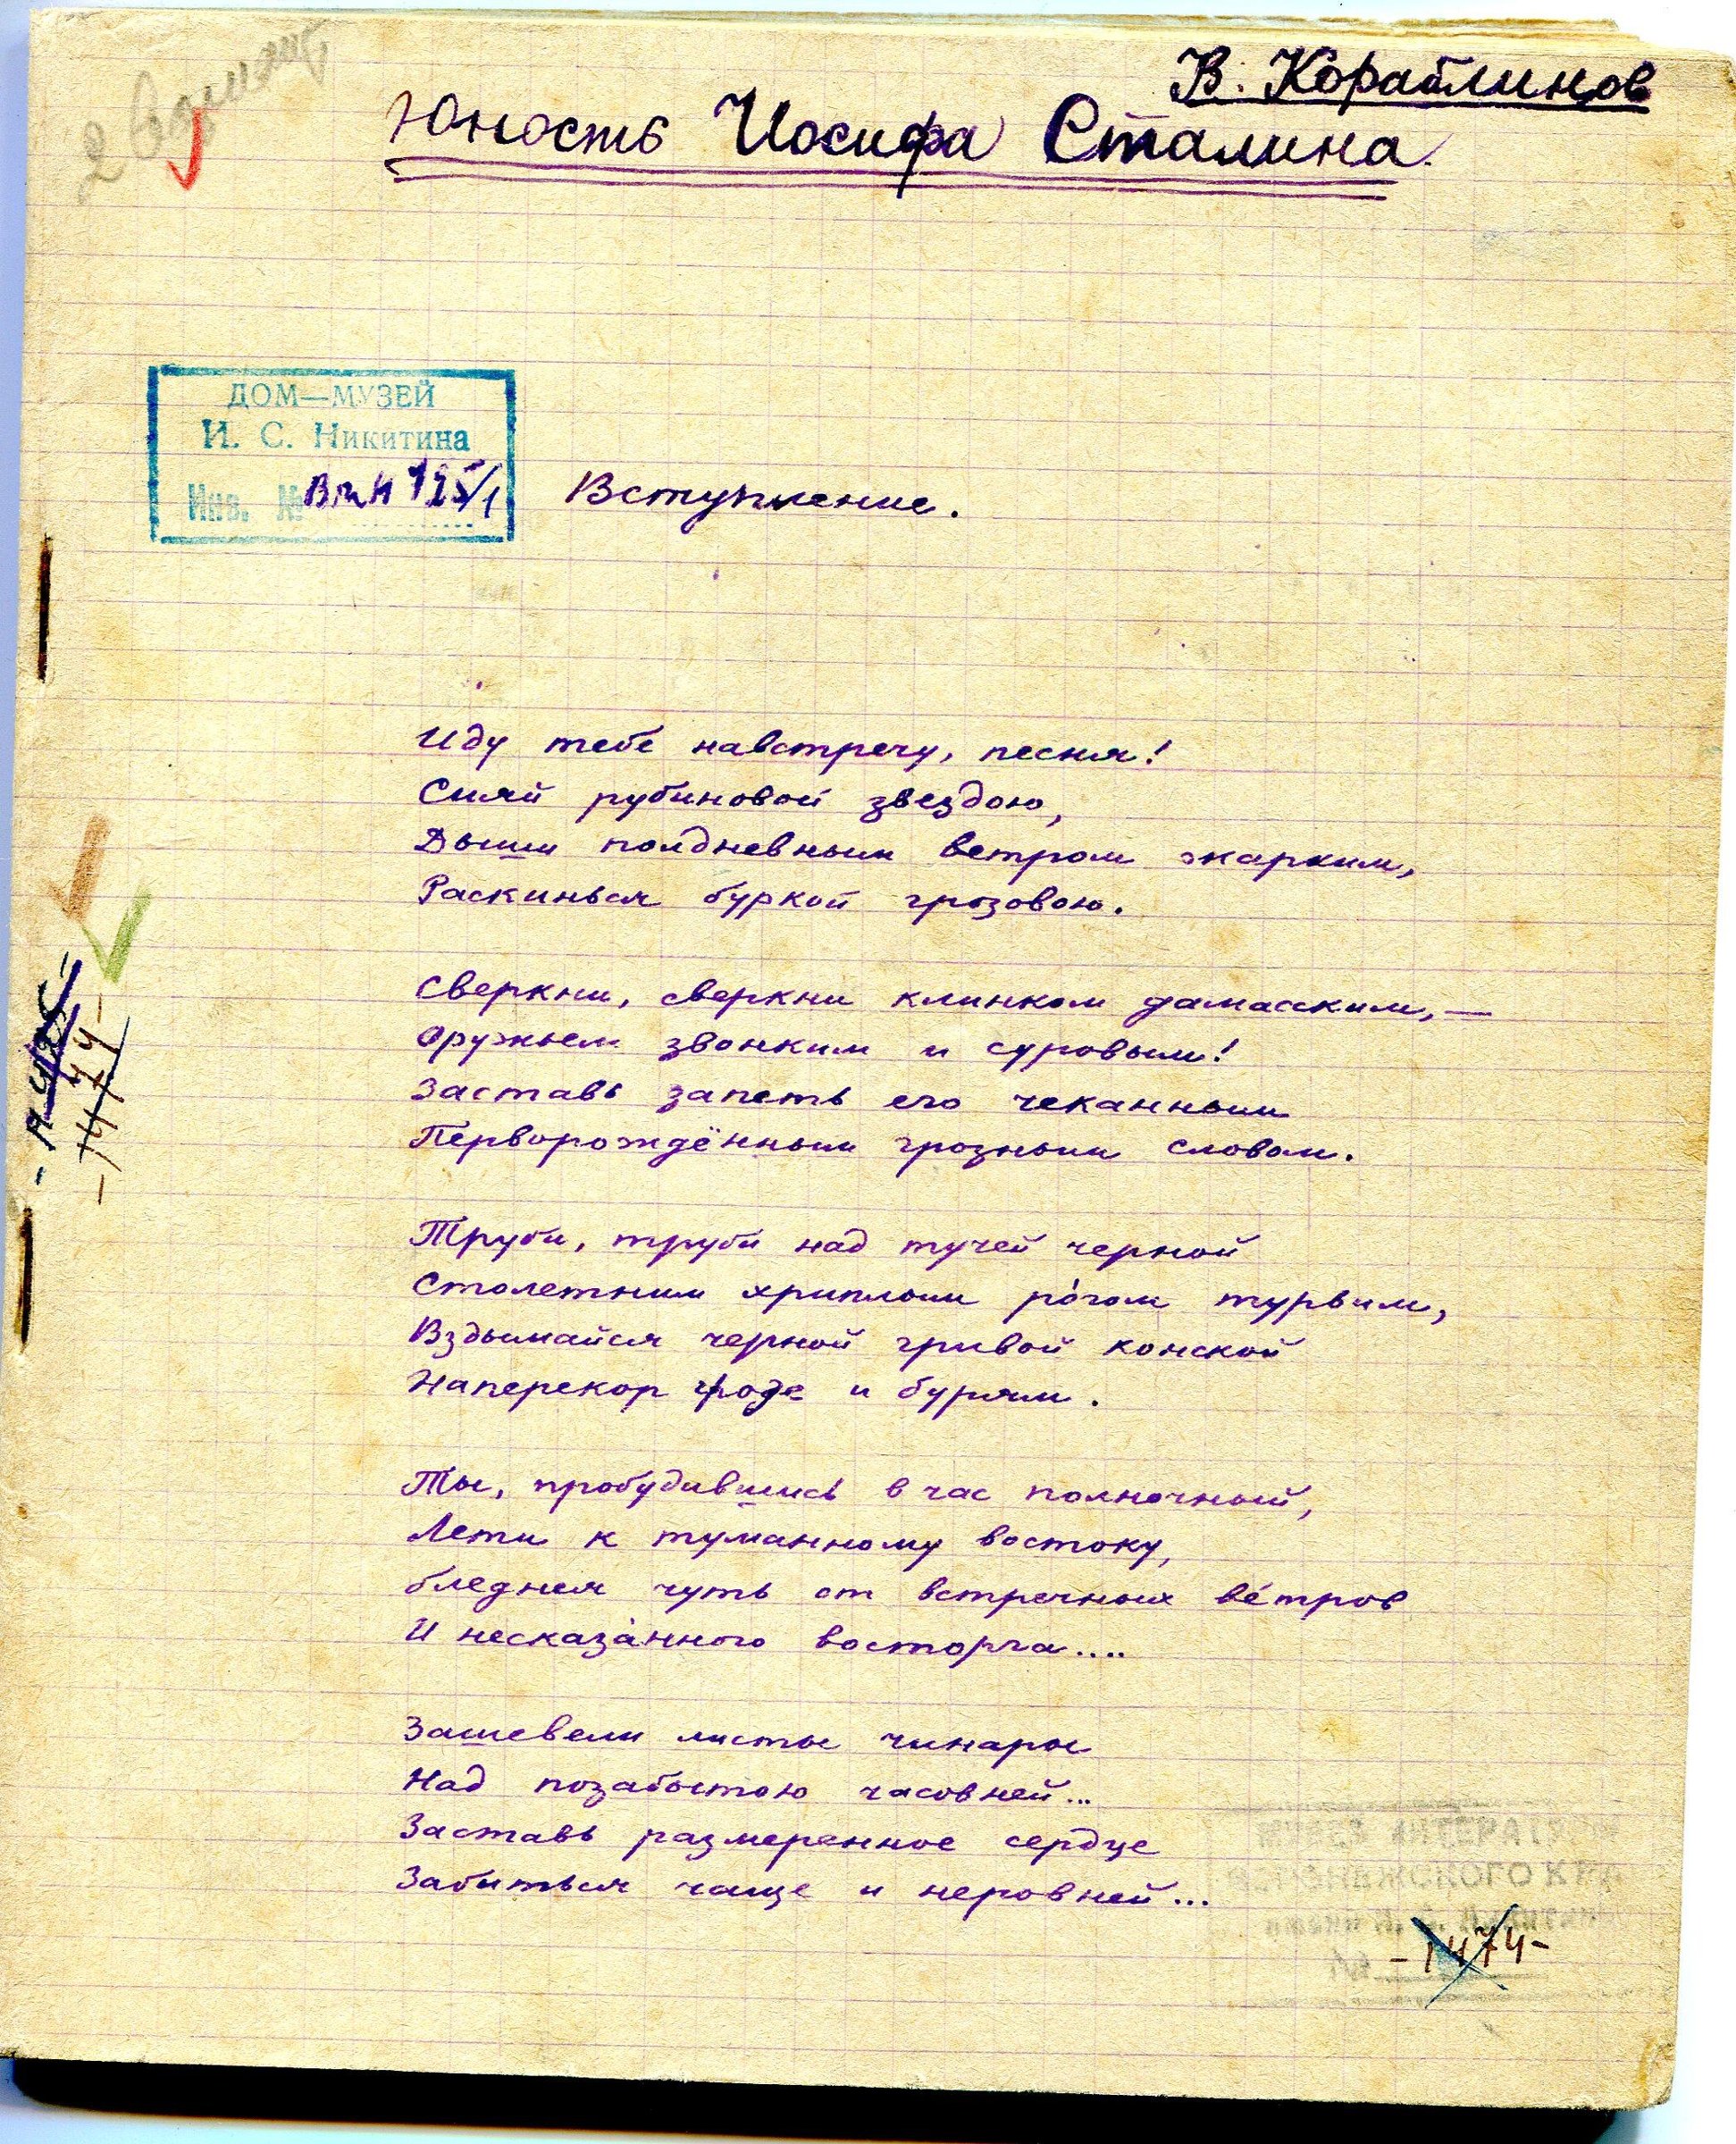 В. Кораблинов
Юность Иосифа Сталина.
ДОМ—МУЗЕЙ
И. С. Никитина
Инв. №
Вступление.
Иду тебе навстречу, песня!
Сияй рубиновой звездою,
Дыши полдневным ветром жарким,
Раскинься буркой грозовою.
Сверкни, сверкни клинком дамасским, —
Оружьем звонким и суровым!
Заставь запеть его чеканным
Перворождённым грозным словом.
Труби, труби над тучей черной
Столетним хриплым ро́гом турьим,
Вздымайся черной гривой конской
Наперекор грозе и бурям.
Ты, пробудившись в час полночный,
Лети к туманному востоку,
бледнея чуть от встречных ве́тров
И несказа́нного восторга....
Зашевели листы чинары
Над позабытою часовней...
Заставь размеренное сердце
Забиться чаще и неровней...
-1474-